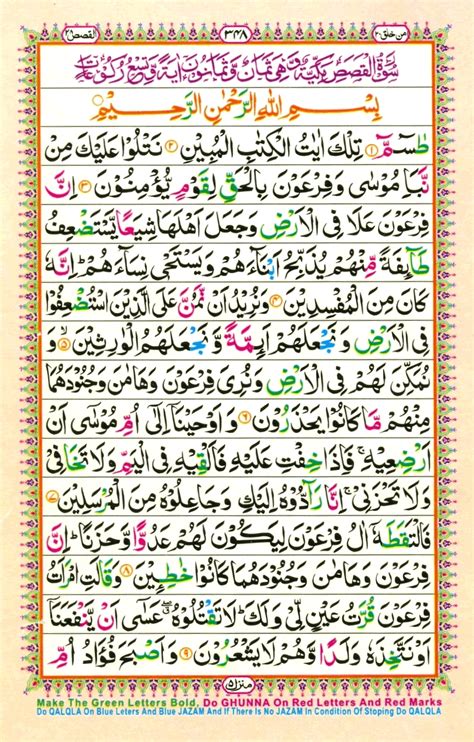 القصص ٢٨ ٣٤٨ امن خلق ٢٠
سُوْرَةُ الْقَصَصِ مَكِّيَّةٌ وَّهِيَ ثَمَانٌ وَّثَمَانُوْنَ اٰيَةً وَّتِسْعُ رُكُوْعَاتٍ
بِسْمِ اللهِ الرَّحْمٰنِ الرَّحِيْمِ
طٰسٓمّٓ ۝١ تِلْكَ اٰيٰتُ الْكِتٰبِ الْمُبِيْنِ ۝٢ نَتْلُوْا عَلَيْكَ مِنْ
نَّبَاِ مُوْسٰى وَفِرْعَوْنَ بِالْحَقِّ لِقَوْمٍ يُّؤْمِنُوْنَ ۝٣ اِنَّ
فِرْعَوْنَ عَلَا فِى الْاَرْضِ وَجَعَلَ اَهْلَهَا شِيَعًا يَّسْتَضْعِفُ
طَآئِفَةً مِّنْهُمْ يُذَبِّحُ اَبْنَآءَهُمْ وَيَسْتَحْيٖ نِسَآءَهُمْ ؕ اِنَّهٗ
كَانَ مِنَ الْمُفْسِدِيْنَ ۝٤ وَنُرِيْدُ اَنْ نَّمُنَّ عَلَى الَّذِيْنَ اسْتُضْعِفُوْا
فِى الْاَرْضِ وَنَجْعَلَهُمْ اَئِمَّةً وَّنَجْعَلَهُمُ الْوٰرِثِيْنَ ۝٥ وَ
نُمَكِّنَ لَهُمْ فِى الْاَرْضِ وَنُرِىَ فِرْعَوْنَ وَهَامٰنَ وَجُنُوْدَهُمَا
مِنْهُمْ مَّا كَانُوْا يَحْذَرُوْنَ ۝٦ وَاَوْحَيْنَآ اِلٰٓى اُمِّ مُوْسٰٓى اَنْ
اَرْضِعِيْهِ ۚ فَاِذَا خِفْتِ عَلَيْهِ فَاَلْقِيْهِ فِى الْيَمِّ وَلَا تَخَافِىْ
وَلَا تَحْزَنِىْ ۚ اِنَّا رَآدُّوْهُ اِلَيْكِ وَجَاعِلُوْهُ مِنَ الْمُرْسَلِيْنَ ۝٧
فَالْتَقَطَهٗٓ اٰلُ فِرْعَوْنَ لِيَكُوْنَ لَهُمْ عَدُوًّا وَّحَزَنًا ؕ اِنَّ
فِرْعَوْنَ وَهَامٰنَ وَجُنُوْدَهُمَا كَانُوْا خٰطِـِٕيْنَ ۝٨ وَقَالَتِ امْرَاَتُ
فِرْعَوْنَ قُرَّتُ عَيْنٍ لِّىْ وَلَكَ ؕ لَا تَقْتُلُوْهُ ۖ عَسٰٓى اَنْ يَّنْفَعَنَآ
اَوْ نَتَّخِذَهٗ وَلَدًا وَّهُمْ لَا يَشْعُرُوْنَ ۝٩ وَاَصْبَحَ فُؤَادُ اُمِّ
منزل ٥
Make The Green Letters Bold, Do GHUNNA On Red Letters And Red Marks
Do QALQLA On Blue Leters And Blue JAZAM And If There Is No JAZAM In Condition Of Stoping Do QALQLA